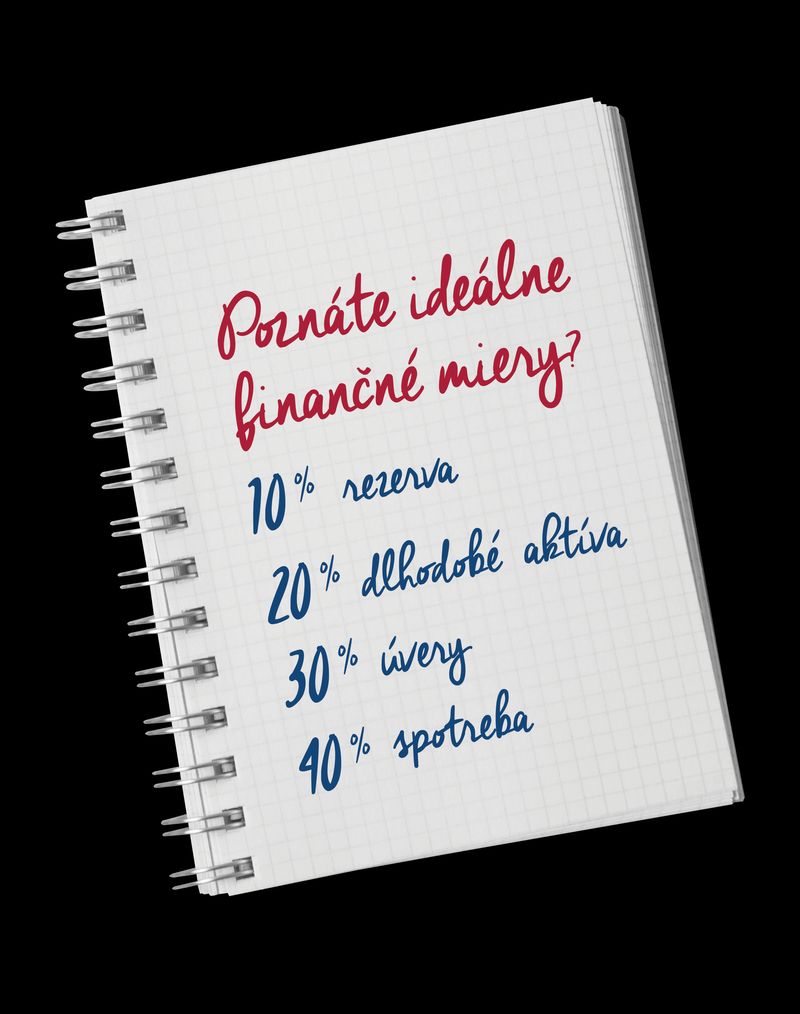 Poznáte ideálne
finančné miery?
10% rezerva
20% dlhodobé aktíva
30% úvery
40% spotreba